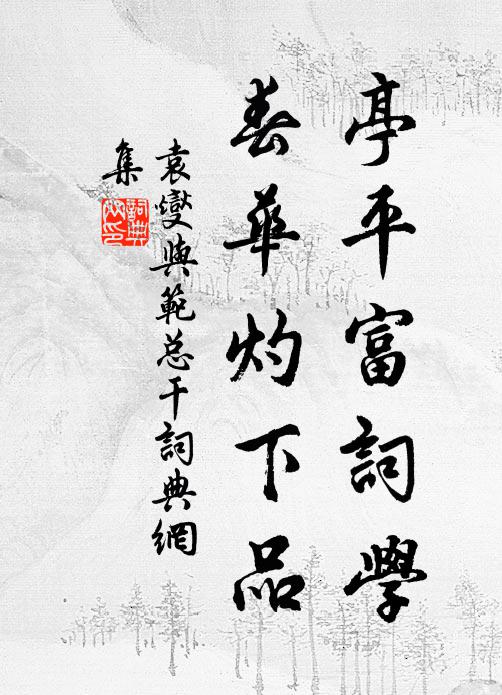 亭平富詞學
春華灼下品
袁燮與範总干詞典網
集
詞典
网印